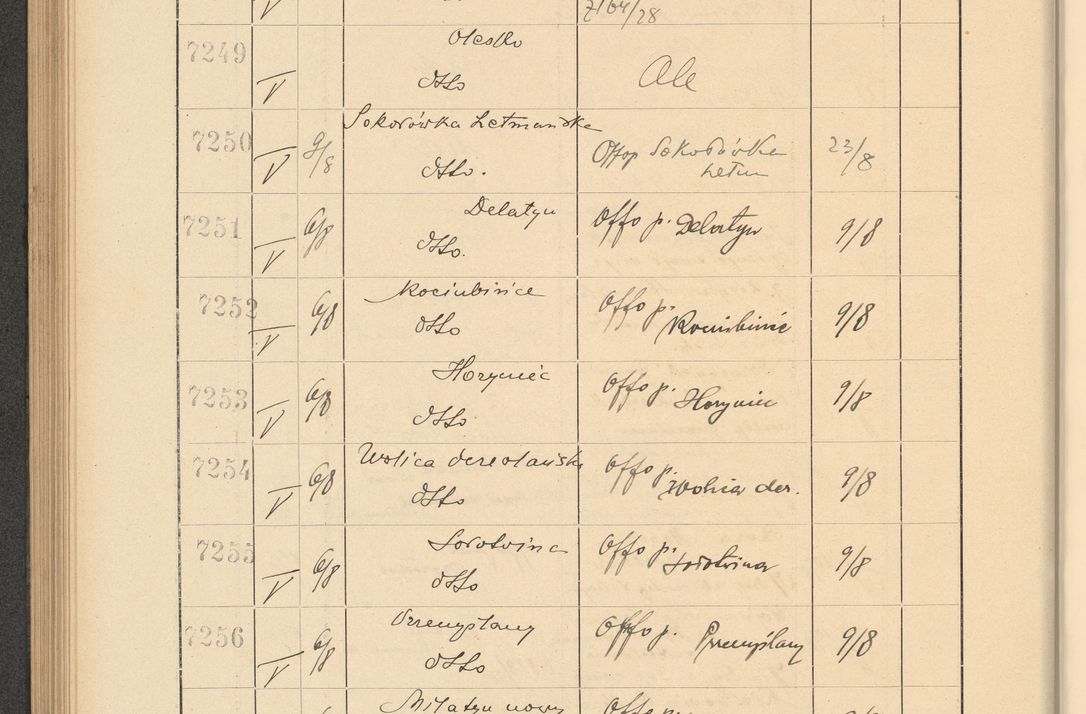 V 7164/28
7249 Olesko
V dtto Ale
7250 9/8 Sokorówka hetmańska
V dtto. Offo p Sokorówka hetm 23/8
7251 6/8 Delatyn
V dtto. Offo p. Delatyn 9/8
7252 6/8 Kociubińce
V dtto Offo p. Kociubińce 9/8
7253 6/8 Horyniec
V dtto Offo p. Horyniec 9/8
7254 6/8 Wolica derewlańska
V dtto Offo p. Wolica der. 9/8
7255 6/8 Sorotwina
V dtto Offo p. Sorotwina 9/8
7256 6/8 Przemyślany
V dtto Offo p. Przemyślany 9/8
Milatyn nowy